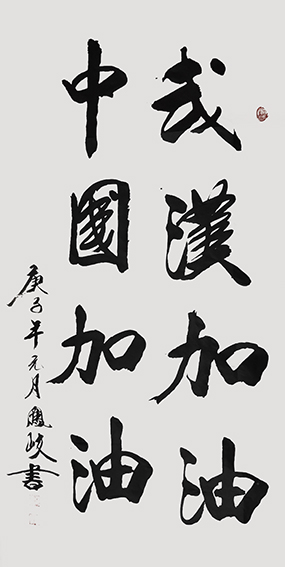 武漢加油
中國加油
庚子年元月鳳岐書